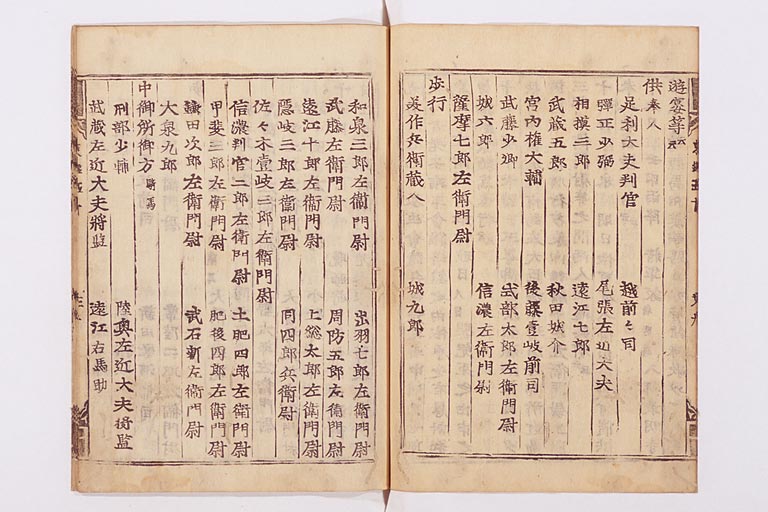 遊宴等
供奉人
足利大夫判官　越前々司
十郎弾正少弼　尾張左近大夫
三相摸三郎　遠江七郎
武蔵五郎　秋田城介
宮内権大輔　後藤壹岐前司
武藤少卿　式部太郎左衛門尉
城六郎　信濃左衛門尉
薩摩七郎左衛門尉
歩行
美作兵衛蔵人　城九郎
和泉三郎左衛門尉　出羽七郎左衛門尉
武藤左衛門尉　周防五郎左衛門尉
遠江十郎左衛門尉　上総太郎左衛門尉
隠岐三郎左衛門尉　同四郎兵衛尉
佐々木壹岐三郎左衛門尉
信濃判官二郎左衛門尉　土肥四郎左衛門尉
甲斐三郎左衛門尉　大肥後四郎左衛門尉
鎌田次郎左衛門尉　武石新左衛門尉
大泉九郎
中御所御方 騎馬
刑部少輔　陸奥左近大夫将監
武蔵左近大夫将監　遠江右馬助